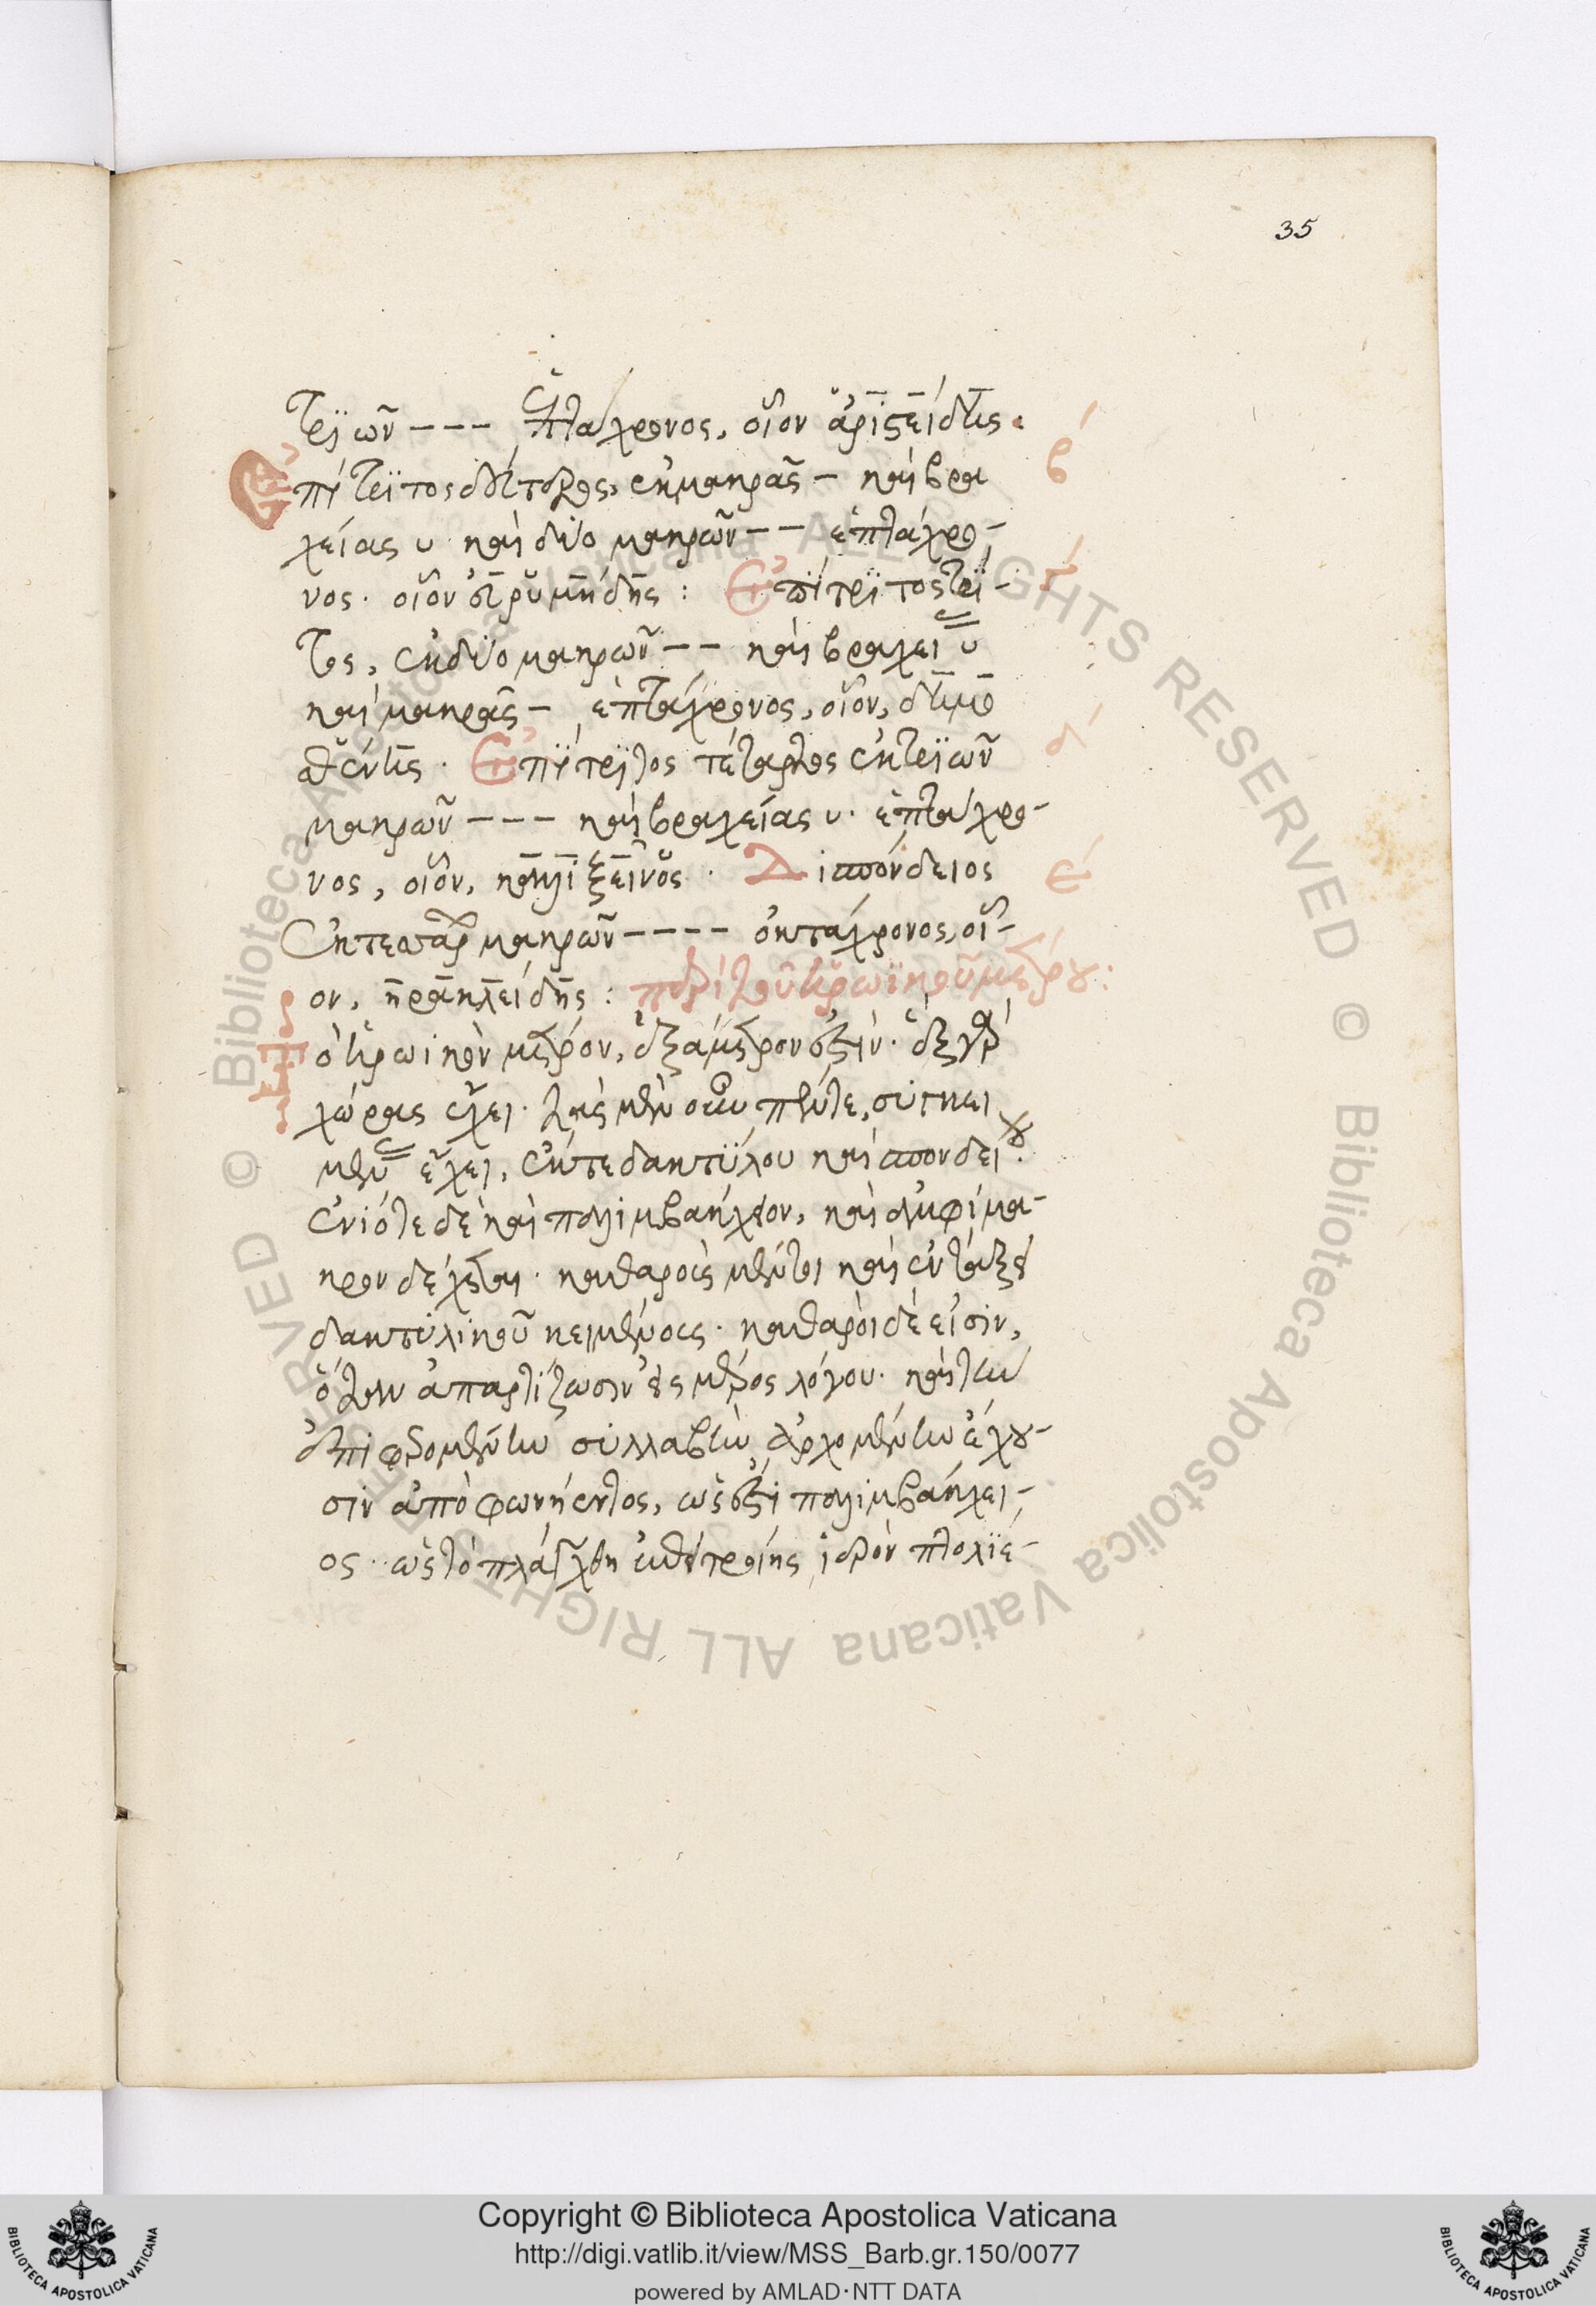 35
τριῶν – – – ἑπτάχρονος, οἷον ἀριστείδης. β´
Ἐπίτριτος δεύτερος, ἐκ μακρᾶς – καὶ βρα
χείας υ καὶ δύο μακρῶν – – ἑπτάχρο-
νος. οἷον εὐρυμήδης : Ἐπίτριτος τρί- γ´
τος, ἐκ δύο μακρῶν – – καὶ βραχείας υ
καὶ μακρᾶς – ἑπτάχρονος, οἷον, δημο
σθένης. Ἐπίτριτος τέταρτος ἐκ τριῶν δ´
μακρῶν – – – καὶ βραχείας υ. ἑπτάχρο-
νος, οἷον, καλλίξεινος. Δισπόνδειος ε´
ἐκ τεσσάρων μακρῶν – – – – ὀκτάχρονος, οἷ-
ον, ἡρακλείδης : περὶ τοῦ ἡρωϊκοῦ μέτρου :
Τὸ ἡρωικὸν μέτρον, ἑξάμετρόν ἐστιν. ἓξ γὰρ
χώρας ἔχει. τὰς μὲν οὖν πέντε, συγκει
μένας ἔχει, ἔκ τε δακτύλου καὶ σπονδείου.
ἐνίοτε δὲ καὶ παλιμβάκχειον, καὶ ἀμφίμα-
κρον δέχεται. καθαροὺς μέντοι καὶ ἐν τάξει
δακτυλικοῦ κειμένους. καθαροὶ δέ εἰσιν,
ὅταν ἀπαρτίζωσιν εἰς μέρος λόγου. καὶ τὴν
ἐπιφερομένην συλλαβὴν ἀρχομένην ἔχου-
σιν ἀπὸ φωνήεντος, ὡς ἐπὶ παλιμβακχεί-
ος. ὡς τὸ πλάγχθη ἐπεὶ τροίης ἱερὸν πτολίε-
Copyright © Biblioteca Apostolica Vaticana
http://digi.vatlib.it/view/MSS_Barb.gr.150/0077
powered by AMLAD·NTT DATA